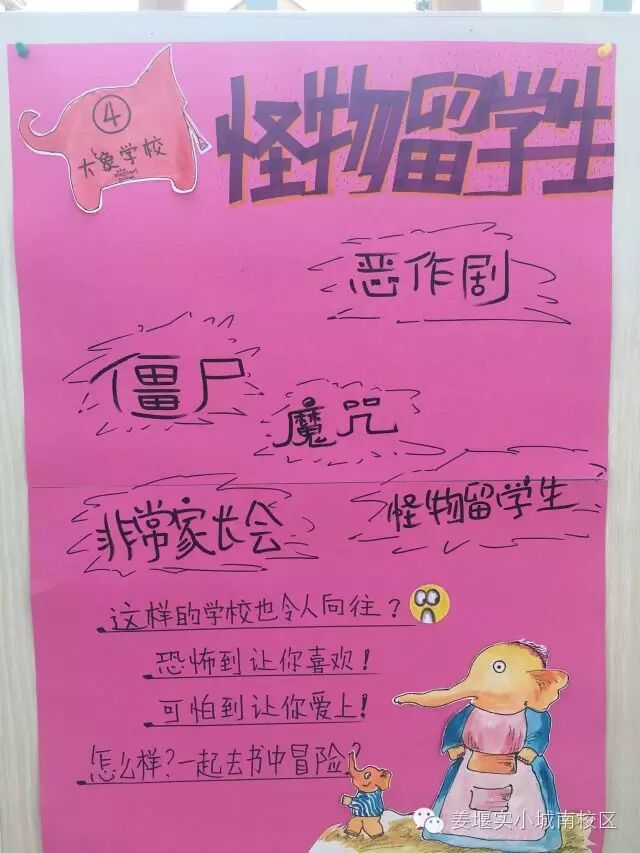 ④
怪物留学生
大象学校
恶作剧
僵尸
魔咒
非常家长会
怪物留学生
这样的学校也令人向往？
恐怖到让你喜欢！
可怕到让你爱上！
怎么样？一起去书中冒险？
姜堰实小城南校区